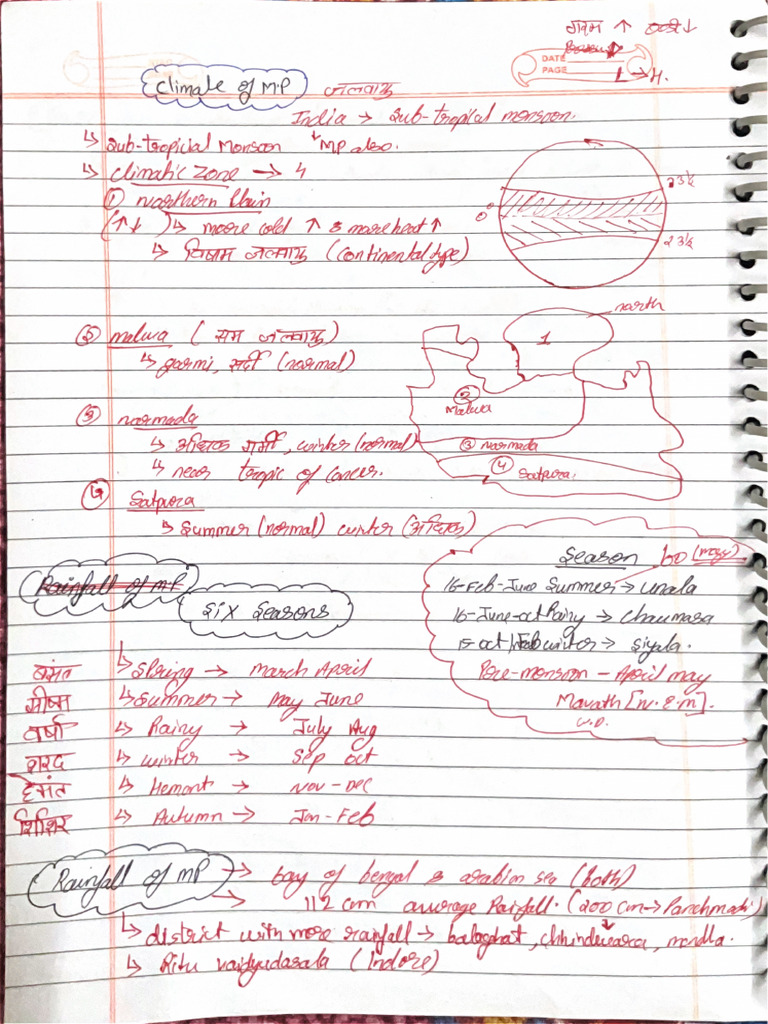 गरम ↑ ठंडी ↓
DATE
PAGE
L → H.
Climate of M.P जलवायु
India → Sub-tropical monsoon.
↳ Sub-tropicial Monsoon ↓ MP also.
↳ Climatic Zone → 4
① Northern Plain
23½
(↑↓) ↳ moore cold ↑ & more heat ↑
0°
↳ विषम जलवायु (Continental type)
23½
north
② malwa ( सम जलवायु )
1
↳ garmi, सर्दी (normal)
②
Malwa
③ narmada
↳ अधिक गर्मी, winter (normal)
③ narmada
↳ near tropic of Cancer.
④ Satpura.
④ Satpura
↳ Summer (normal) winter (अधिक)
Season 60 (may)
Rainfall of M.P
16-Feb-June Summer → unala
Six Seasons
16-June-oct Rainy → Chaumasa
15 oct/Feb winter → Siyala.
बसंत ↳ Spring → march April
Pore-monsoon - April may
ग्रीष्म ↳ Summer → may June
Mavath [N.E.m].
W.D.
वर्षा ↳ Rainy → July Aug
शरद ↳ winter → Sep oct
हेमंत ↳ Hemont → Nov - Dec
शिशिर ↳ Autumn → Jan - Feb
Rainfall of MP → bay of bengal & arabian sea (both)
→ 112 cm average Rainfall. (200 cm → Panchmadi)
↳ district with more rainfall → balaghat, chhindwara, mandla.
↳ Ritu vaidyudasala (Indore)